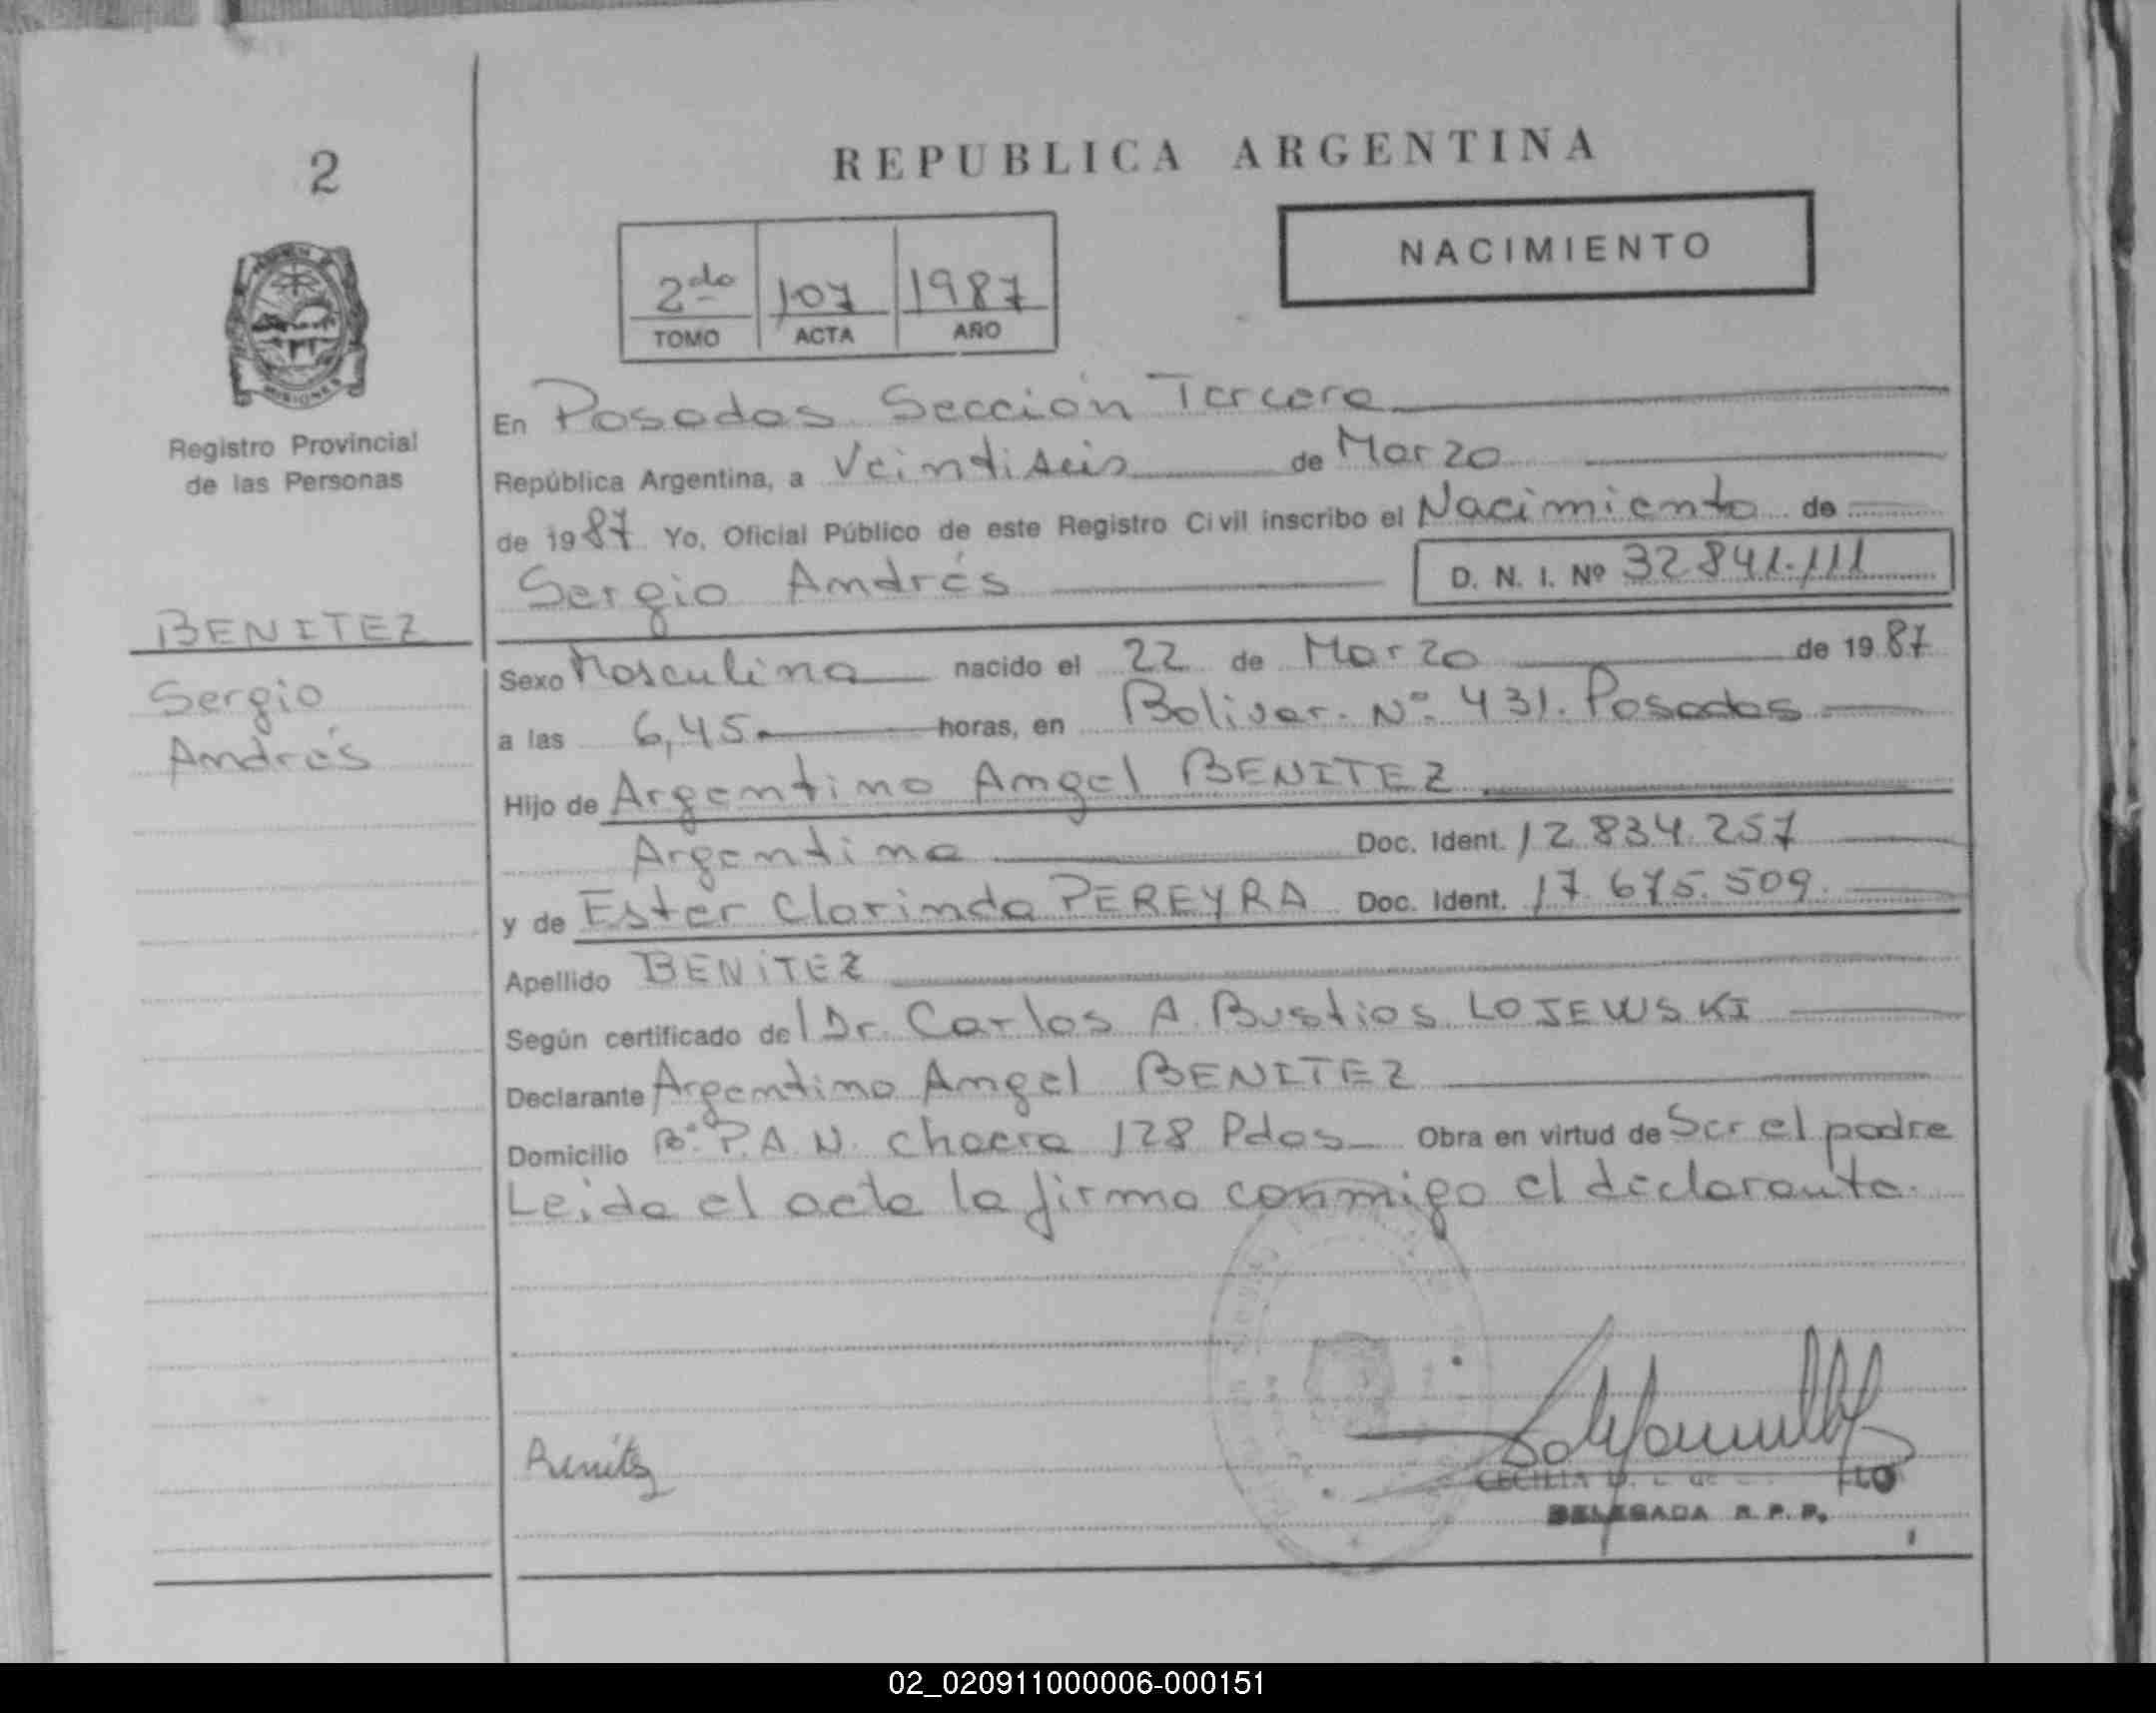 2
REPUBLICA ARGENTINA
NACIMIENTO
2do 107 1987
TOMO ACTA AÑO
Registro Provincial
de las Personas
En Posadas Sección Tercera
República Argentina, a Veintiseis de Marzo
de 1987 Yo, Oficial Público de este Registro Civil inscribo el Nacimiento de
Sergio Andrés D. N. I. Nº 32.841.111
BENITEZ
Sergio
Andrés
Sexo Masculino nacido el 22 de Marzo de 1987
a las 6,45 horas, en Bolivar Nº 431. Posadas
Hijo de Argentino Angel BENITEZ
Argentina Doc. Ident. 12.834.257
y de Ester Clorinda PEREYRA Doc. Ident. 17.675.509
Apellido BENITEZ
Según certificado del Dr. Carlos A. Bustios LOJEWSKI
Declarante Argentino Angel BENITEZ
Domicilio Bº P.A.N. chacra 128 Pdas Obra en virtud de Ser el padre
Leida el acta la firma conmigo el declarante.
Benitez
CECILIA
DELEGADA R. P. P.
02_020911000006-000151